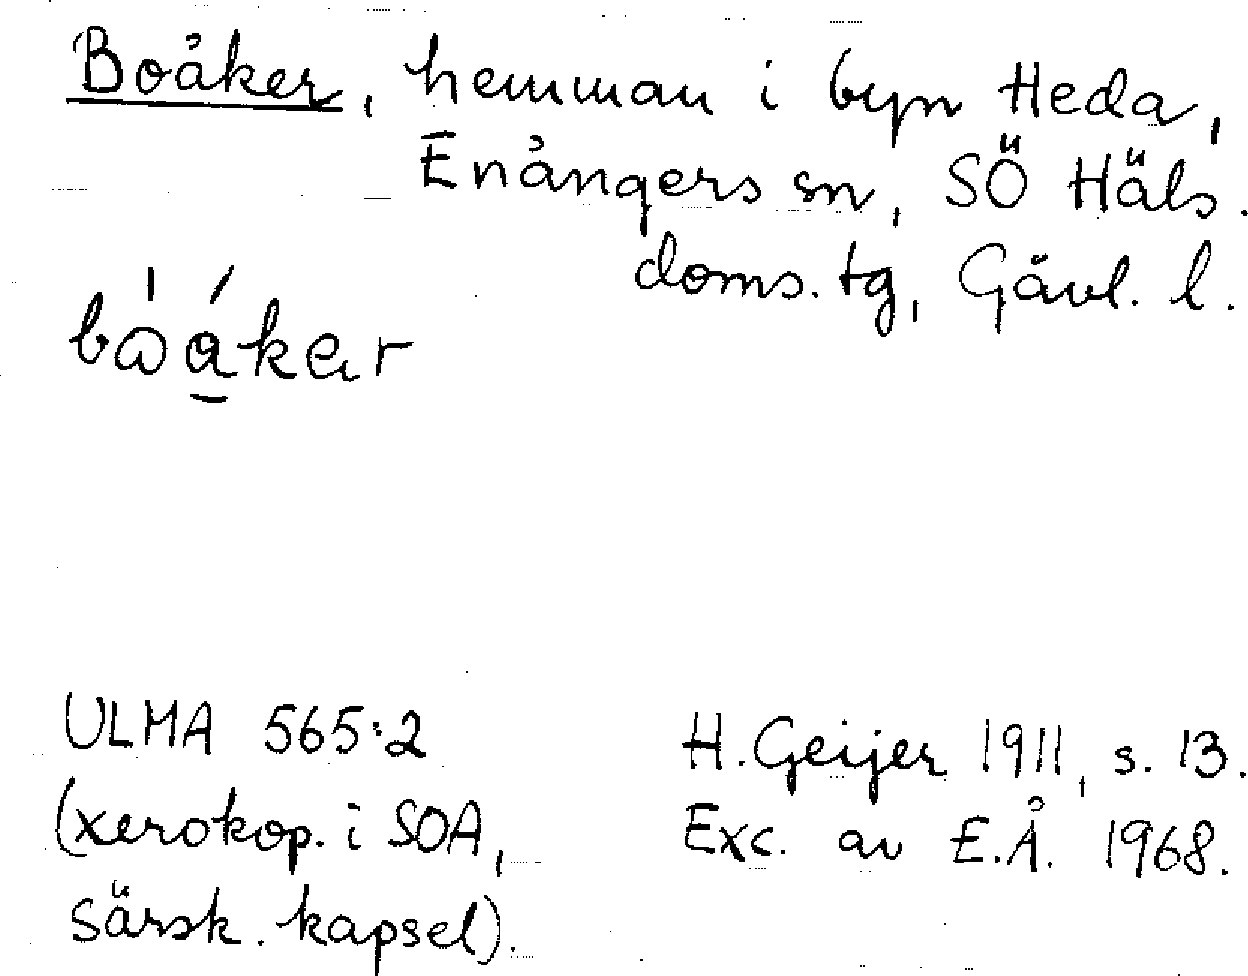 Boåker, hemman i byn Heda,
Enångers sn, SÖ Häls.
doms. tg, Gävl. l.
ULMA 565:2
(xerokop. i SOA,
särsk. kapsel).
H. Geijer 1911, s. 13.
Exc. av E.Å. 1968.